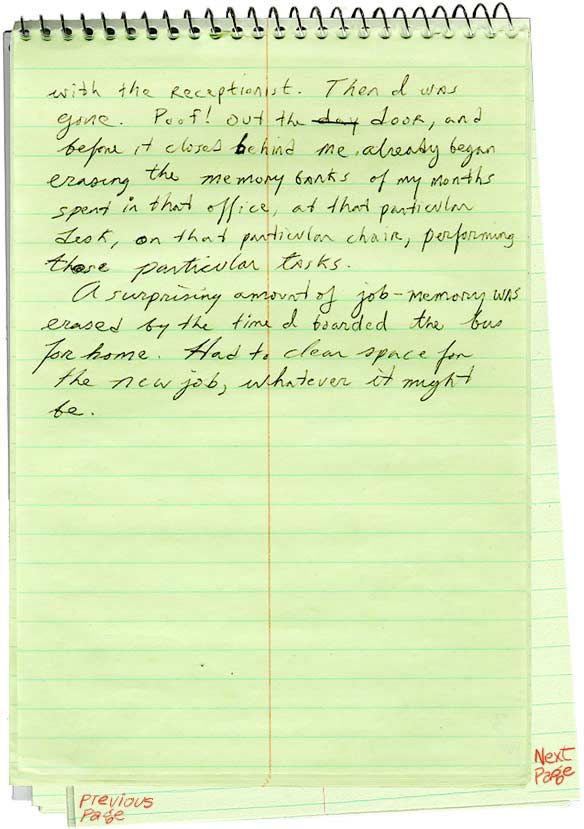 with the receptionist. Then I was
gone. Poof! Out the day door, and
before it closed behind me, already began
erasing the memory banks of my months
spent in that office, at that particular
desk, on that particular chair, performing
those particular tasks.
A surprising amount of job-memory was
erased by the time I boarded the bus
for home. Had to clear space for
the new job, whatever it might
be.
Next
Page
Previous
Page